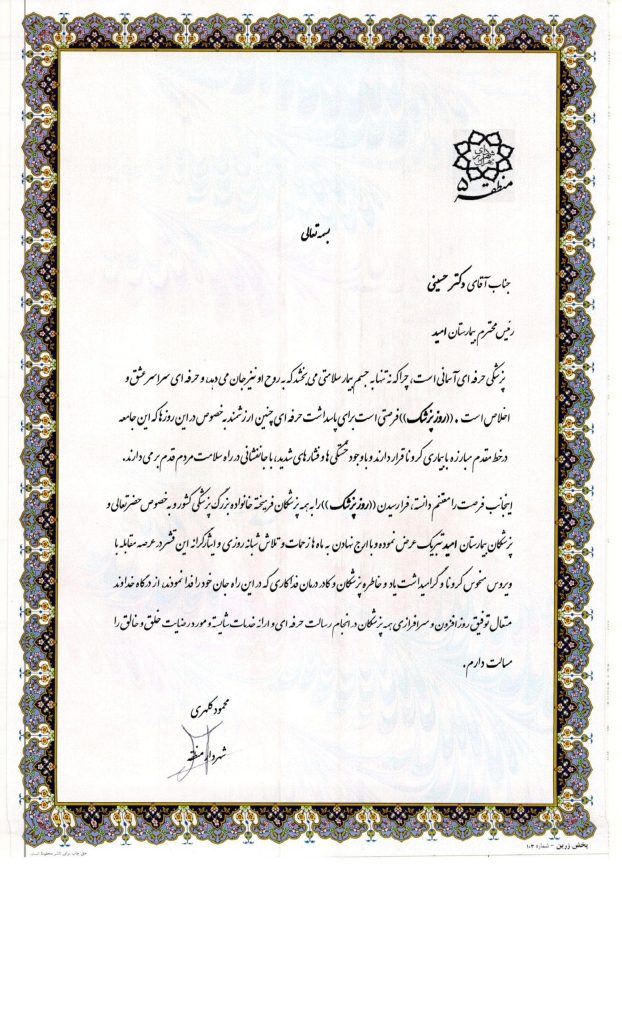 شهرداری تهران
منطقه ۵
بسمه تعالی
جناب آقای دکتر حسینی
رئیس محترم بیمارستان امید
پزشکی حرفه ای آسمانی است، چرا که نه تنها به جسم بیمار سلامتی می بخشد که به روح او نیز جان می دمد، و حرفه ای سراسر عشق و
اخلاص است . ((روز پزشک)) فرصتی است برای پاسداشت حرفه ای چنین ارزشمند به خصوص در این روزها که این جامعه
در خط مقدم مبارزه با بیماری کرونا قرار دارند و با وجود خستگی ها و فشارهای شدید، با جانفشانی در راه سلامت مردم قدم بر می دارند.
اینجانب فرصت را مغتنم دانسته، فرارسیدن ((روز پزشک)) را به همه پزشکان فرهیخته خانواده بزرگ پزشکی کشور و به خصوص حضرتعالی و
پزشکان بیمارستان امید تبریک عرض نموده و با ارج نهادن به ماه ها زحمات و تلاش شبانه روزی و ایثارگرانه این قشر در عرصه مقابله با
ویروس منحوس کرونا و گرامیداشت یاد و خاطره پزشکان و کادر درمان فداکاری که در این راه جان خود را فدا نمودند، از درگاه خداوند
متعال توفیق روزافزون و سرافرازی همه پزشکان در انجام رسالت حرفه ای و ارائه خدمات شایسته و مورد رضایت خلق و خالق را
مسالت دارم .
محمود کلهری
شهردار منطقه
پخش زرین - شماره ۱۰۳
حق چاپ برای ناشر محفوظ است.